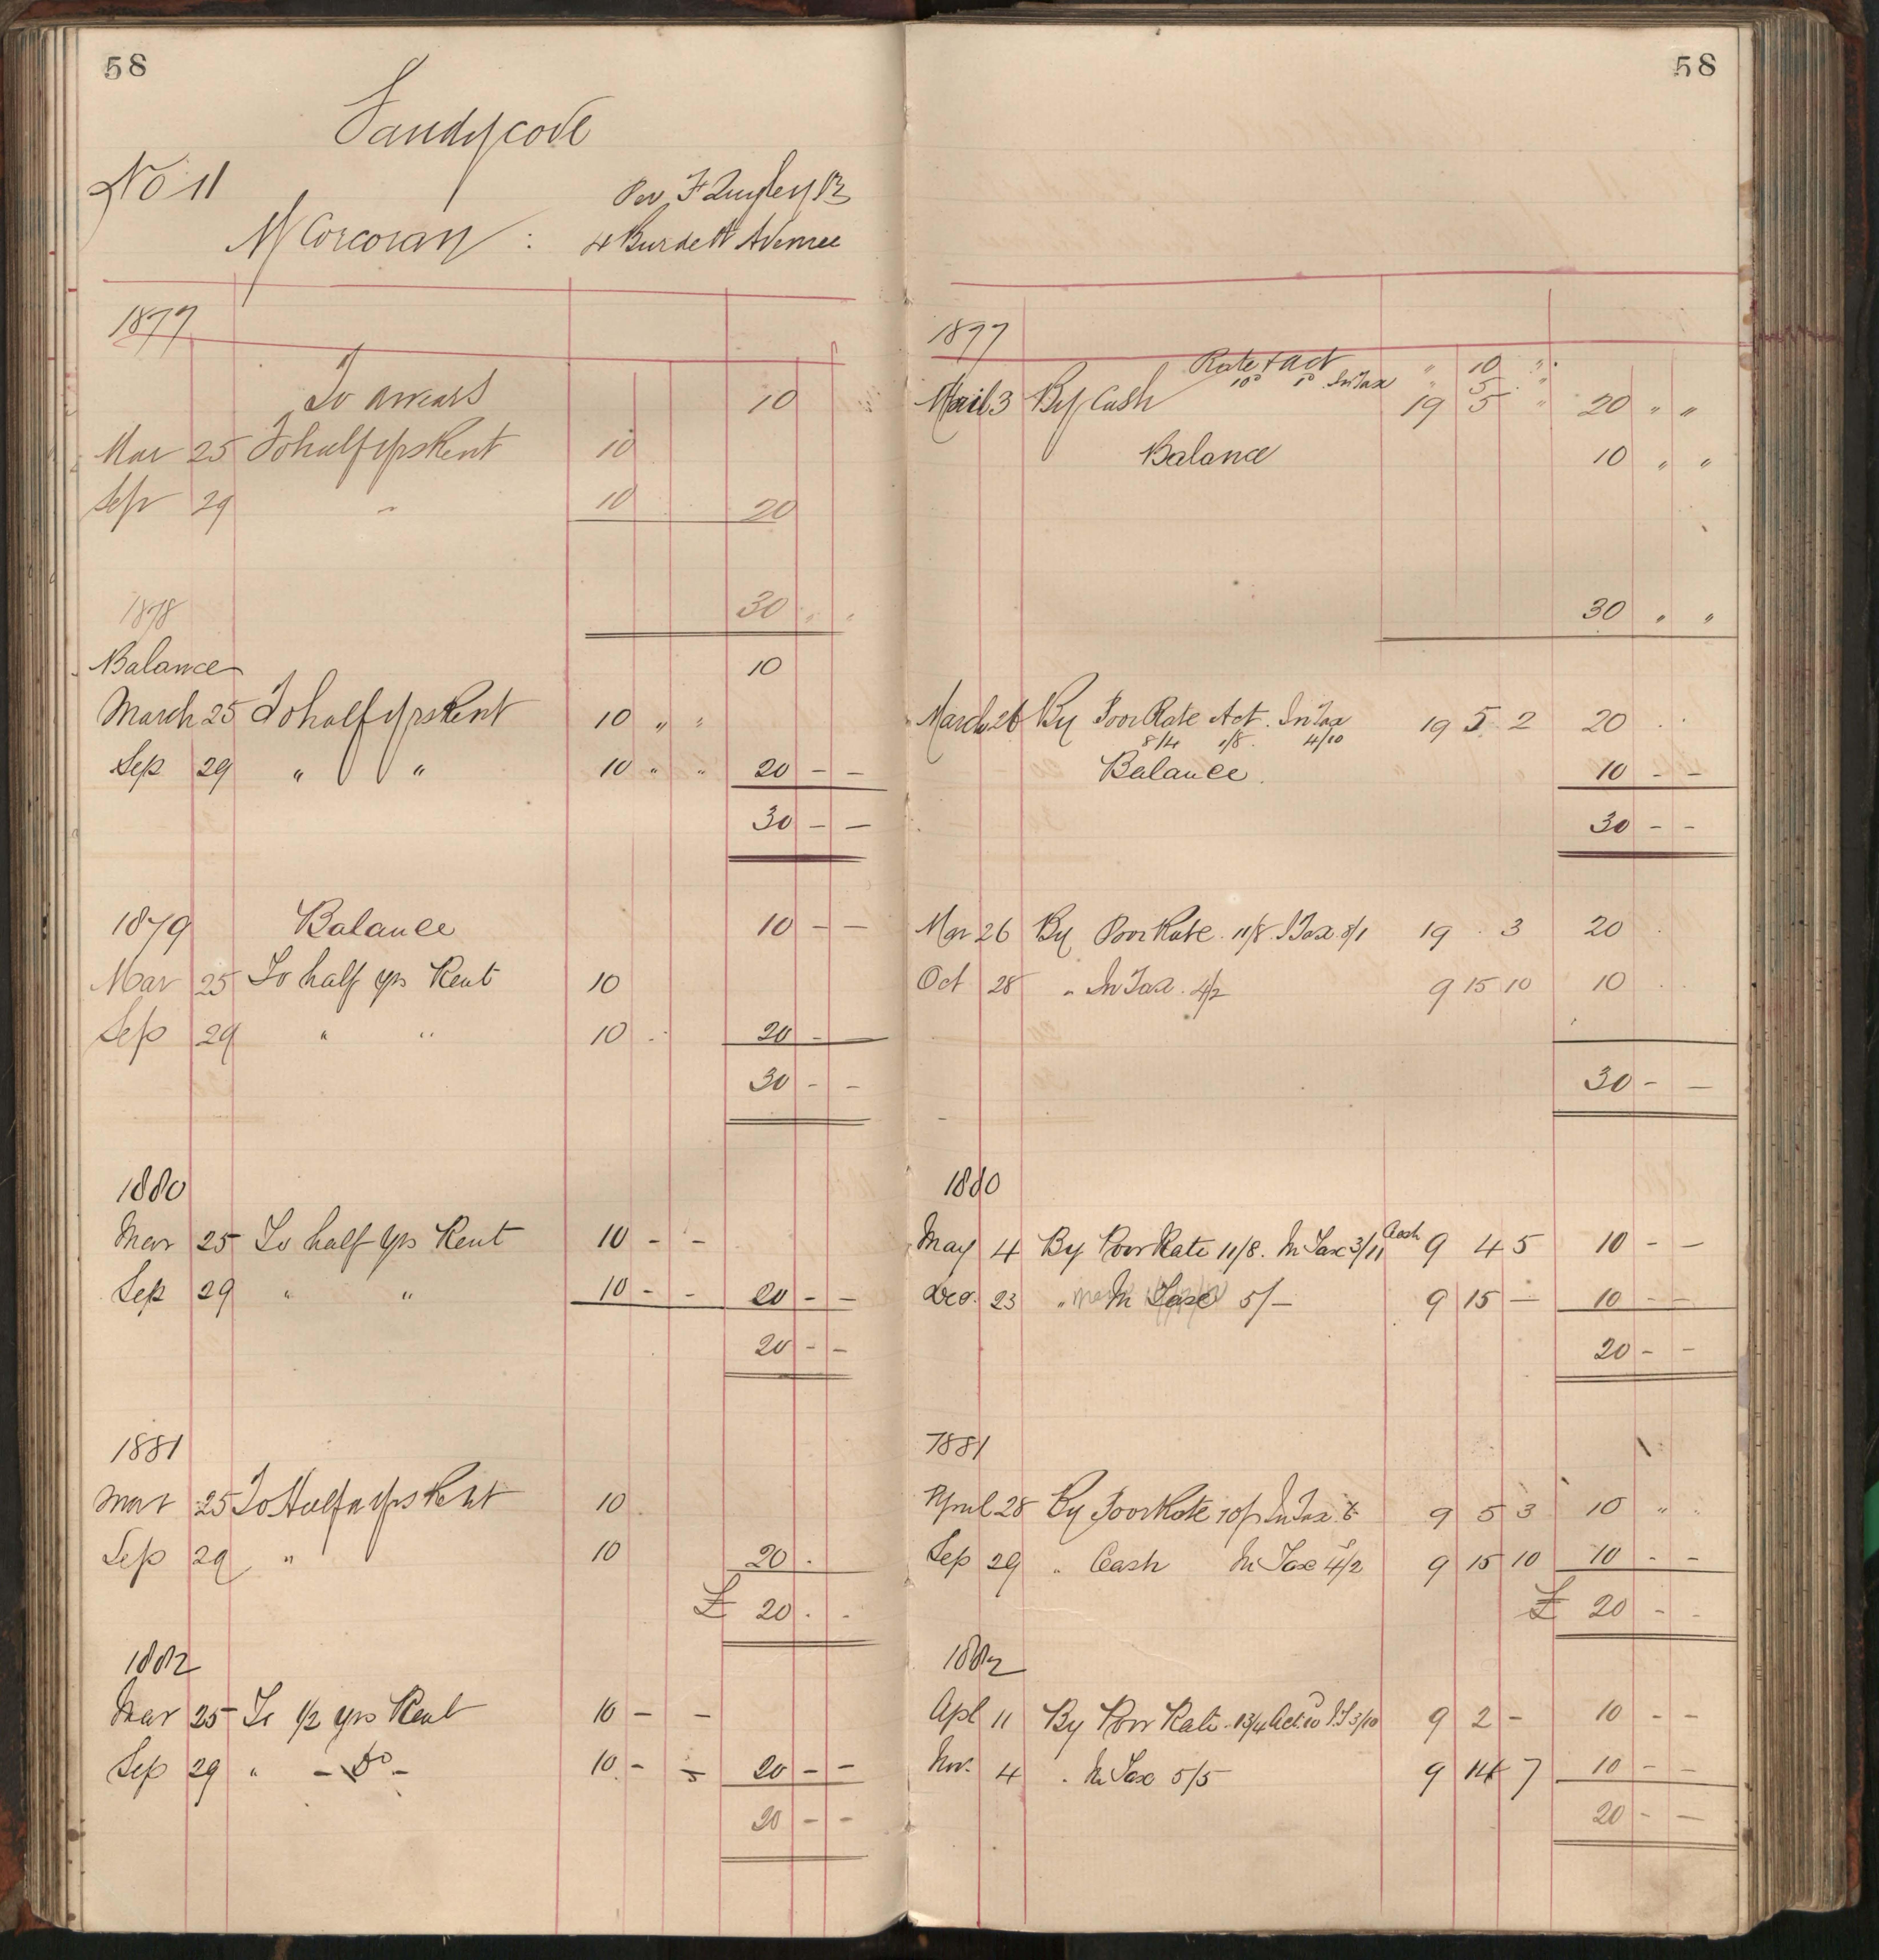 58
Sandycove
No 11
Per F Quigley
M Corcoran : 4 Burdett Avenue
1877
To arrears 10
Mar 25 To half yrs Rent 10
Sep 29 " 10 20
1878 30 " "
Balance 10
March 25 To half yrs Rent 10 " "
Sep 29 " " 10 " " 20 - -
30 - -
1879 Balance 10 - -
Mar 25 To half yrs Rent 10
Sep 29 " " 10 20 -
30 - -
1880
Mar 25 To half yrs Rent 10 - -
Sep 29 " " 10 - - 20 - -
20 - -
1881
Mar 25 To Half yrs Rent 10
Sep 29 " 10 20
£ 20
1882
Mar 25 To 1/2 yrs Rent 10 - -
Sep 29 " - Do - 10 - - 20 - -
20 - -
58
1877
Rate + act " 10 "
10 In Tax " 5 "
3 By Cash 19 5 " 20 " "
Balance 10 " "
30 " "
March 26 By Poor Rate Act. In Tax 19 5 2 20
8/4 1/8 4/10
Balance 10 - -
30 - -
Mar 26 By Poor Rate 11/8 I Tax 8/1 19 . 3 20
Oct 28 " In Tax 4/2 9 15 10 10
30 - -
1880
May 4 By Poor Rate 11/8. In Tax 3/11 Cash 9 4 5 10 - -
Dec. 23 " In Tax 5/- 9 15 - 10 - -
20 - -
1881
April 28 By Poor Rate 10/ In Tax 9 5 3 10 " "
Sep 29 " Cash In Tax 4/2 9 15 10 10 - -
£ 20 - -
1882
Apl 11 By Poor Rate 13/4 Act 10 I.T 3/10 9 2 - 10 - -
Nov. 4 " In Tax 5/5 9 14 7 10 - -
20 - -